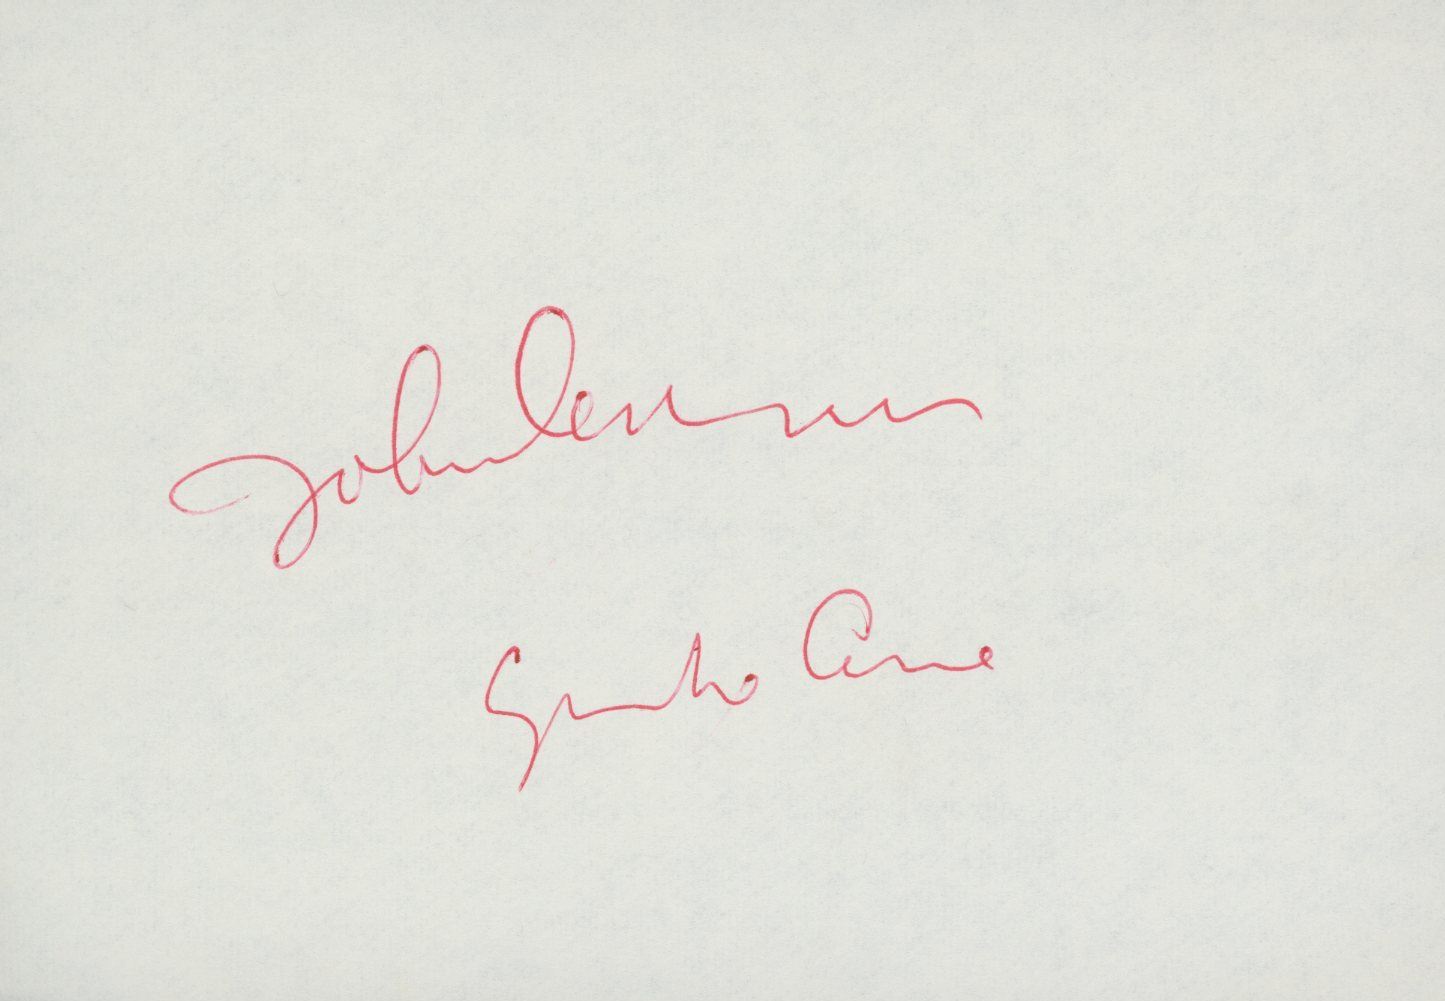 John Lennon
Yoko Ono